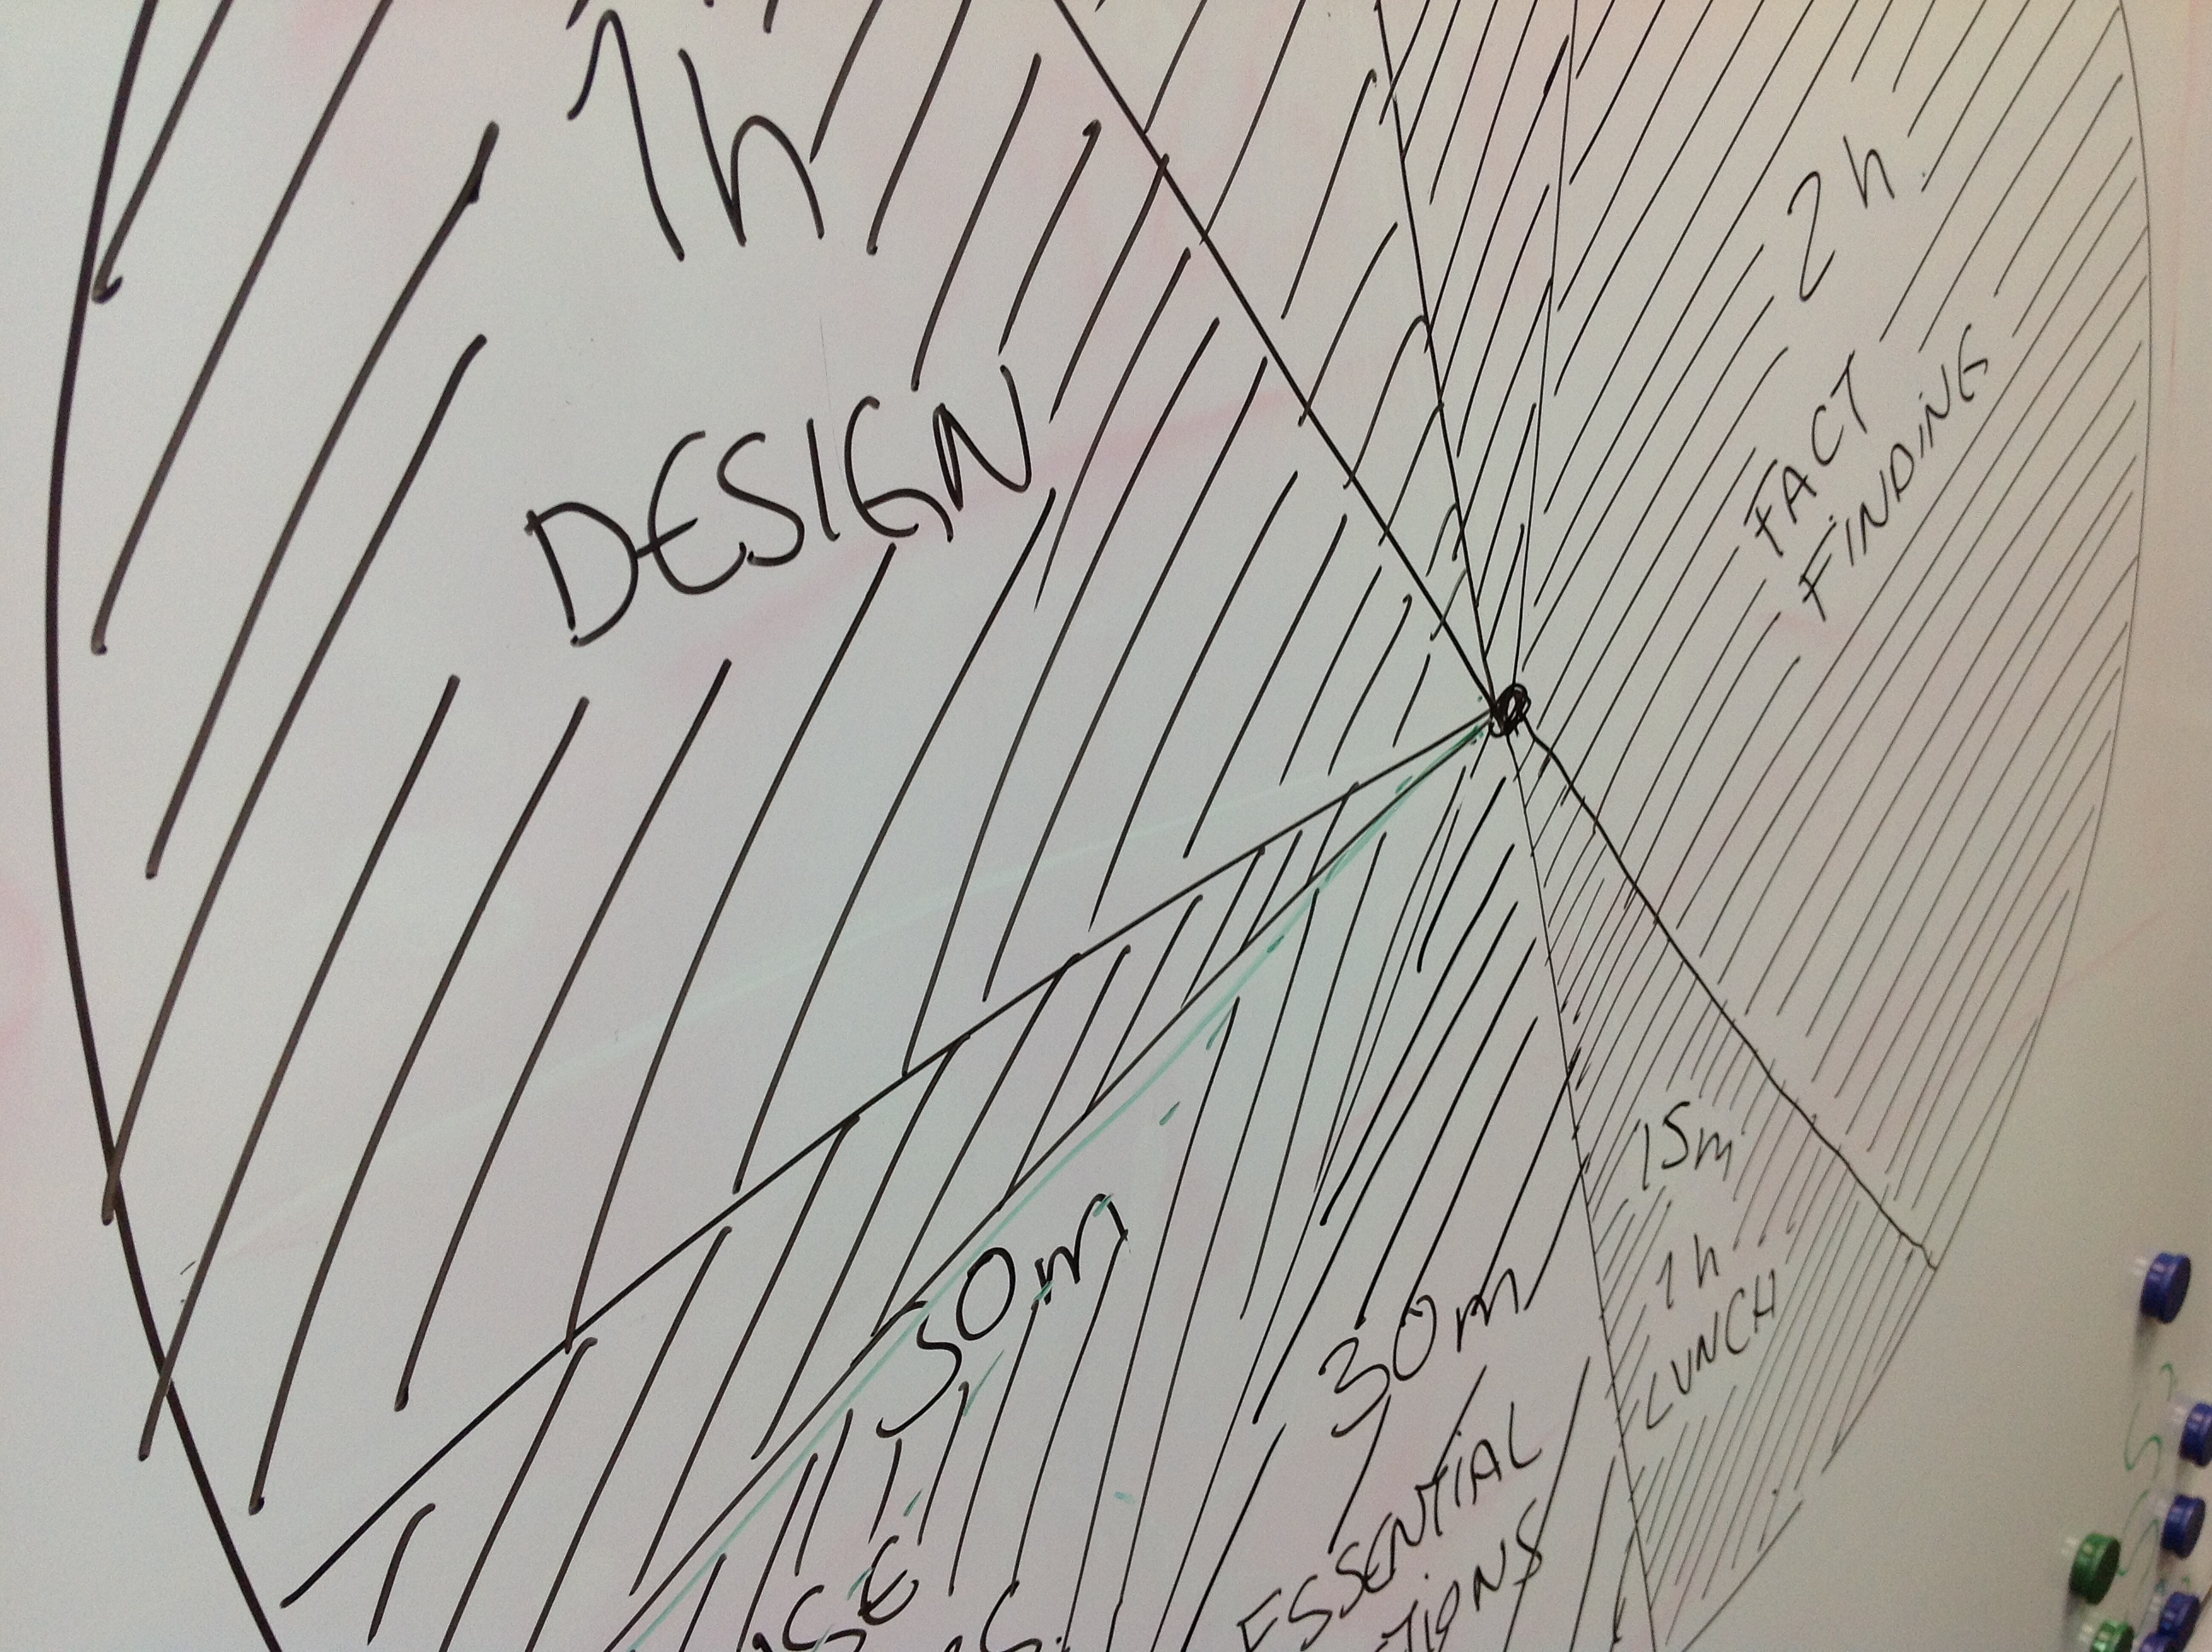 1h
DESIGN
2h
FACT
FINDING
15m
1h
LUNCH
30m
ESSENTIAL
30m